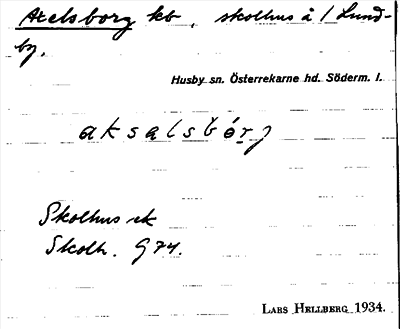 Axelsborg kb, skolhus å 1 Lund-
by.
Husby sn. Österrekarne hd. Söderm. l.
aksalsbórj
Skolhus ek
Skolh. G 74.
Lars Hellberg 1934.